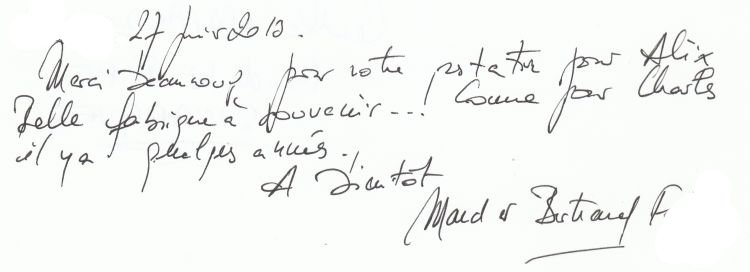 27 juin 2010.
Merci beaucoup pour votre prestation pour Alix
Belle fabrique à souvenir...! Comme pour Charles
il y a quelques années.
A Bientôt
Maud et Bertrand F